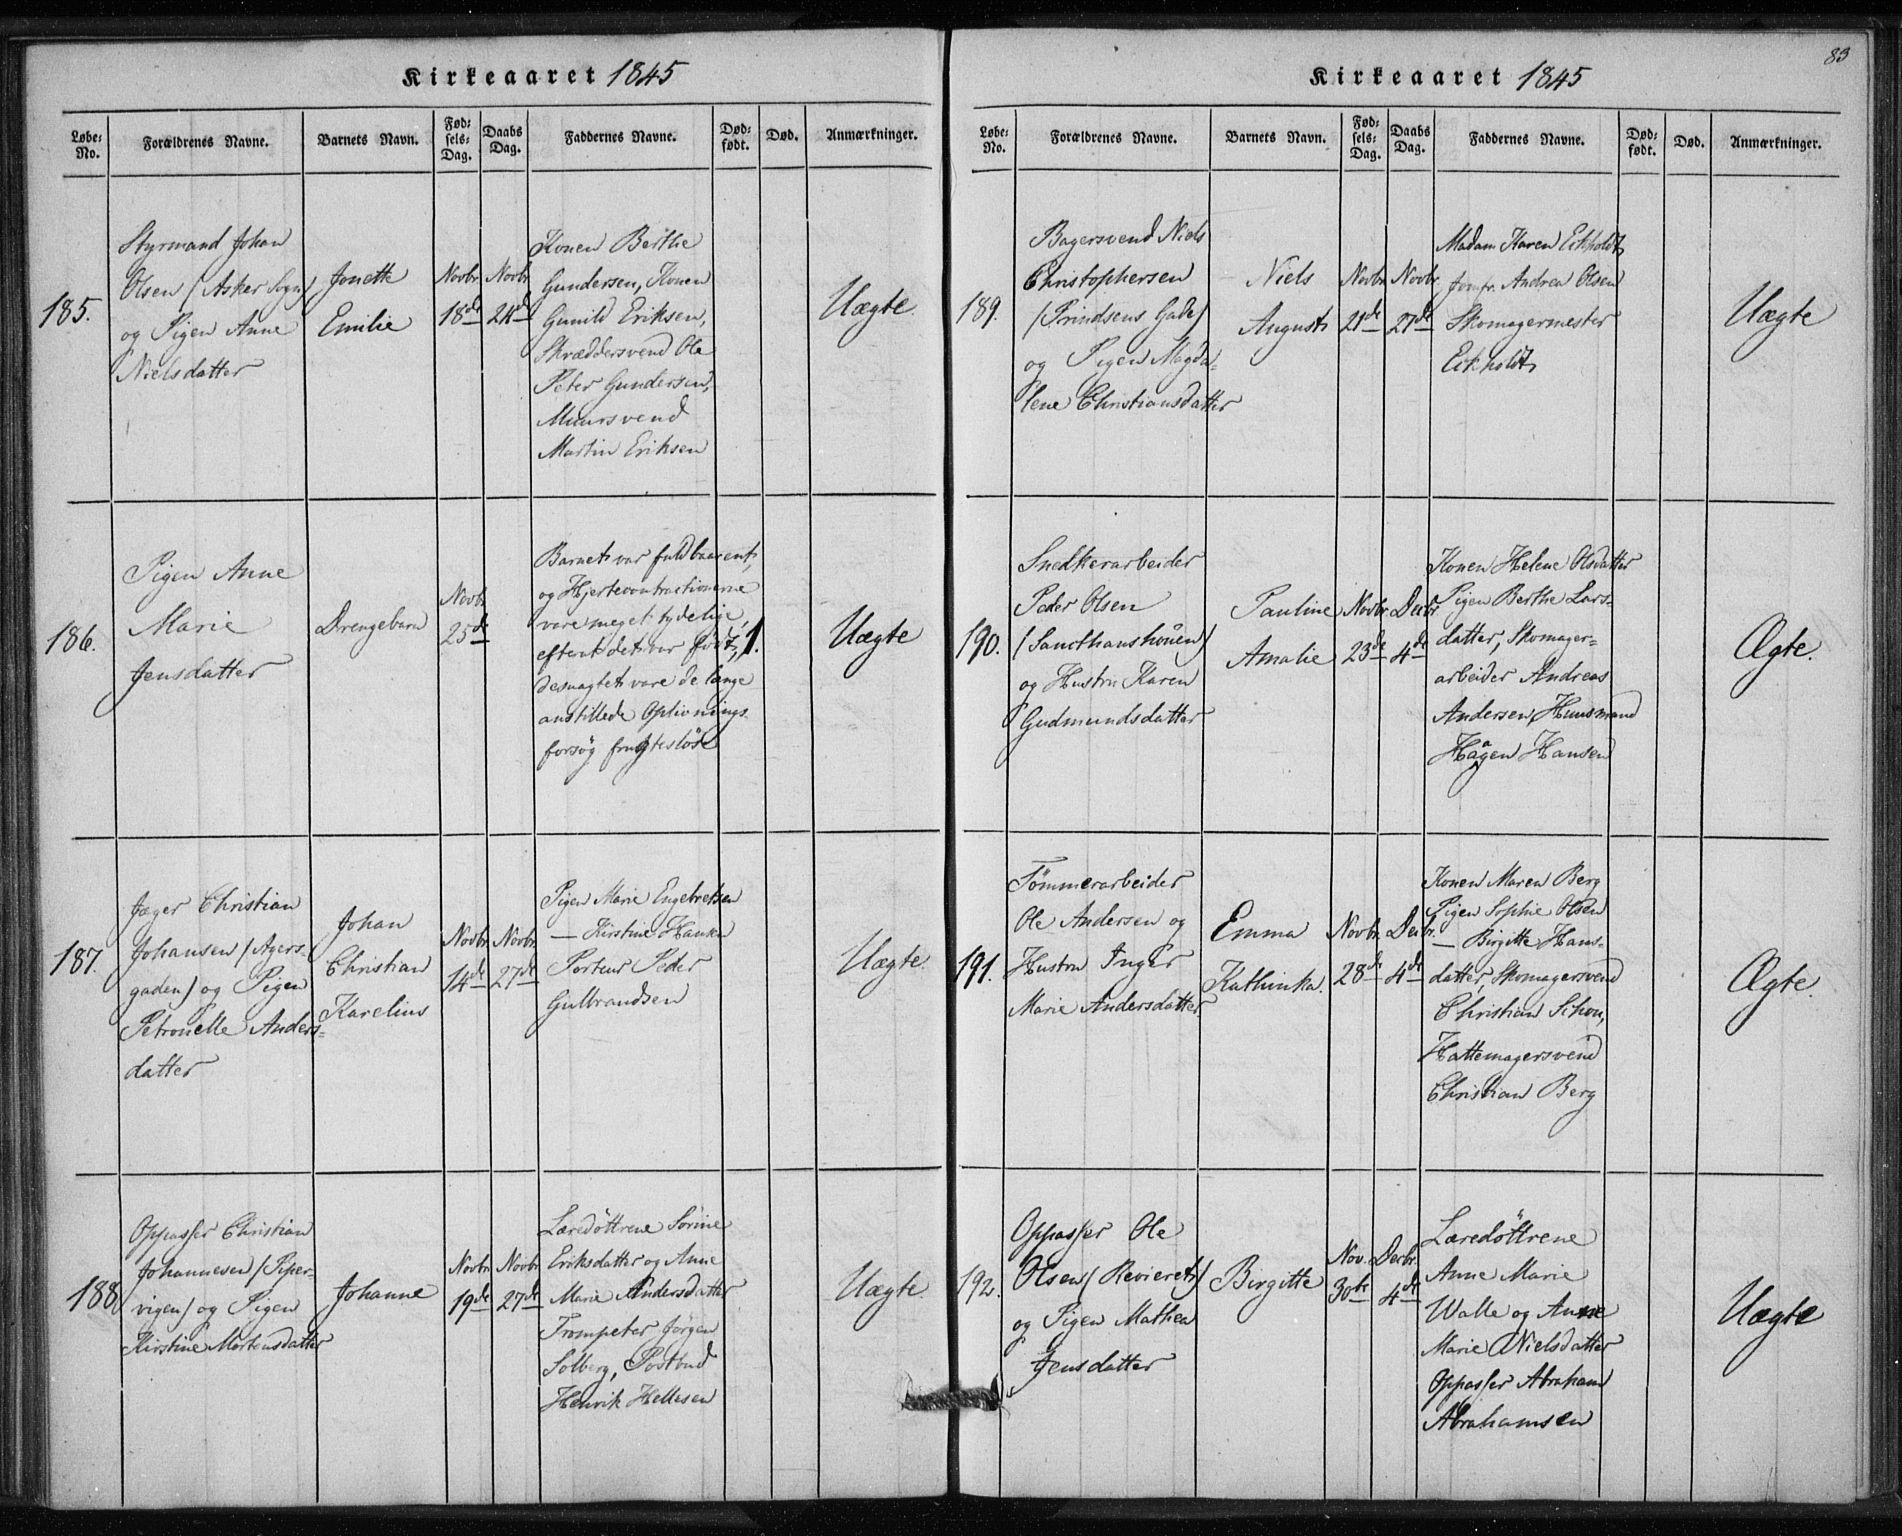 Kirkeaaret 1845
Løbe-No. Forældrenes Navne. Barnets Navn. Fødsels-Dag. Daabs Dag. Faddernes Navne. Dødfødt. Død. Anmærkninger.
185.
Styrmand Johan
Olsen (Asker Sogn)
og Pigen Anne
Nielsdatter
Jonette
Emilie
Novbr
18de
Novbr
24de
Konen Berthe
Gundersen, Konen
Gunild Eriksen,
Skræddersvend Ole
Peter Gundersen,
Muursvend
Martin Eriksen
Uægte.
186.
Pigen Anne
Marie
Jensdatter
Drengebarn
Novbr
25de
Barnet var fuldbaarent,
og Hjertecontractionerne
vare meget tydelige,
efterat det var født,
desuagtet vare de længe
anstillede Oplivnings
forsøg frugtesløse
1.
Uægte
187.
Jæger Christian
Johansen (Agers-
gaden) og Pigen
Petronelle Anders-
datter
Johan
Christian
Karelius
Novbr
14de
Novbr
27de
Pigen Marie Engebretsen
— Kirstine Hanka
Porteur Peder
Gulbrandsen
Uægte.
188
Oppasser Christian
Johannesen (Piper-
vigen) og Pigen
Kirstine Mortensdatter
Johanne
Novbr
19de
Novbr
27de
Læredöttrene Sorine
Eriksdatter og Anne
Marie Andersdatter
Trompeter Jørgen
Solberg, Postbud
Henrik Hellesen
Uægte.
83
Kirkeaaret 1845
Løbe-No. Forældrenes Navne. Barnets Navn. Fødsels-Dag. Daabs Dag. Faddernes Navne. Dødfødt. Død. Anmærkninger.
189.
Bagersvend Niels
Christophersen
(Prindsens Gade)
og Pigen Magda-
lene Christiansdatter
Niels
August
Novbr
21de
Novbr
27de
Madam Karen Eckholdt
Jomfr. Andrea Olsen
Skomagermester
Eckholdt
Uægte
190.
Snedkerarbeider
Peder Olsen
(Sancthanshouen)
og Hustru Karen
Gudmundsdatter
Pauline
Amalie
Novbr
23de
Decbr
4de
Konen Helene Olsdatter
Pigen Berthe Lars-
datter, Skomager-
arbeider Andreas
Andersen, Huusmand
Haagen Hansen
Ægte.
191.
Tömmerarbeider
Ole Andersen og
Hustru Inger
Marie Andersdatter
Emma
Kathinka.
Novbr.
28de
Decbr.
4de
Konen Maren Berg
Pigen Sophie Olsen
— Birgitte Hans-
datter, Skomagersvend
Christian Schou,
Hattemagersvend
Christian Berg
Ægte.
192.
Oppasser Ole
Olsen (Revieret)
og Pigen Mathea
Jensdatter
Birgitte
Nov.
30te
Decbr.
4de
Læredöttrene
Anne Marie
Walle og Anne
Marie Nielsdatter
Oppasser Abraham
Abrahamsen
Uægte